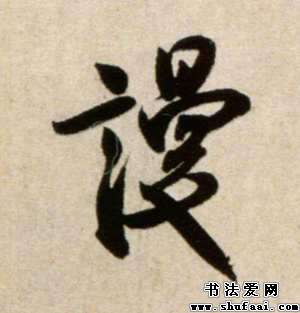 謾
书法爱网
www.shufaai.com